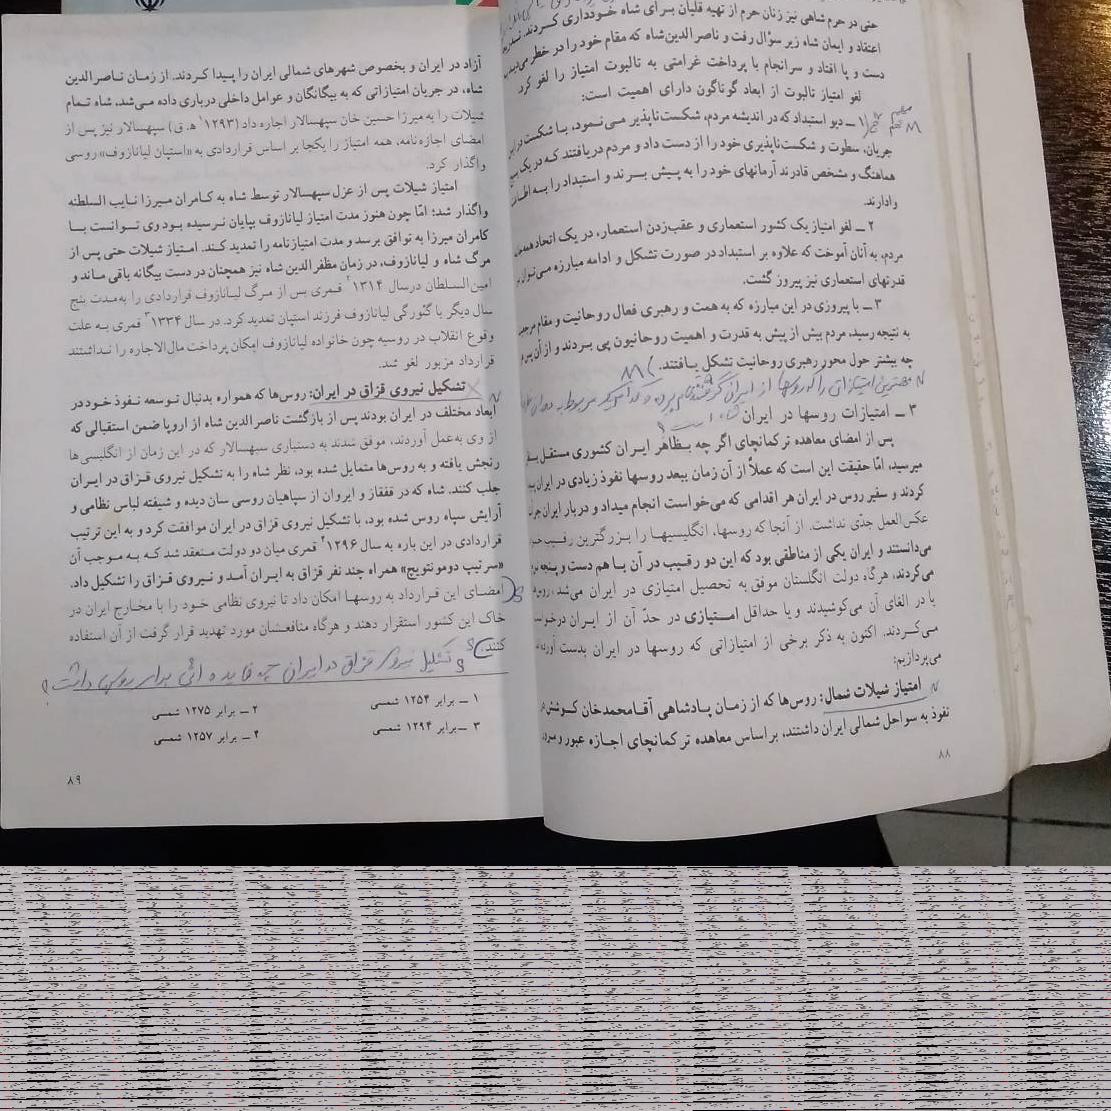 حتی در حرم شاهی نیز زنان حرم از تهیه قلیان برای شاه خودداری کردند.
اعتقاد و ایمان شاه زیر سؤال رفت و ناصرالدین‌شاه که مقام خود را در خطر می‌دید
دست و پا افتاد و سرانجام با پرداخت غرامتی به تالبوت امتیاز را لغو کرد.
لغو امتیاز تالبوت از ابعاد گوناگون دارای اهمیت است:
۱ ــ دیو استبداد که در اندیشه مردم، شکست‌ناپذیر می‌نمود، با شکست در این
جریان، سطوت و شکست‌ناپذیری خود را از دست داد و مردم دریافتند که در یک بسیج
هماهنگ و مشخص قادرند آرمانهای خود را به پیش برند و استبداد را به
وادارند.
۲ ــ لغو امتیاز یک کشور استعماری و عقب‌زدن استعمار، در یک اتحاد همه‌جانبه
مردم، به آنان آموخت که علاوه بر استبداد در صورت تشکل و ادامه مبارزه می‌توان بر
قدرتهای استعماری نیز پیروز گشت.
۳ ــ با پیروزی در این مبارزه که به همت و رهبری فعال روحانیت و مقام مرجعیت
به نتیجه رسید، مردم بیش از پیش به قدرت و اهمیت روحانیون پی بردند و از آن پس هر
چه بیشتر حول محور رهبری روحانیت تشکل یافتند.
مهمترین امتیازاتی را که روسها از ایران گرفتند نام برده و کدامیک مربوط به دوران
۳ ــ امتیازات روسها در ایران
پس از امضای معاهده ترکمانچای اگر چه بظاهر ایران کشوری مستقل بنظر
میرسید، امّا حقیقت این است که عملاً از آن زمان ببعد روسها نفوذ زیادی در ایران پیدا
کردند و سفیر روس در ایران هر اقدامی که می‌خواست انجام میداد و دربار ایران جرأت
عکس‌العمل جدّی نداشت. از آنجا که روسها، انگلیسیها را بزرگترین رقیب خود
می‌دانستند و ایران یکی از مناطقی بود که این دو رقیب در آن با هم دست و پنجه نرم
می‌کردند، هرگاه دولت انگلستان موفق به تحصیل امتیازی در ایران می‌شد، روس‌ها
یا در الغای آن می‌کوشیدند و یا حداقل امتیازی در حدّ آن از ایران درخواست
می‌کردند. اکنون به ذکر برخی از امتیازاتی که روسها در ایران بدست آورده‌اند
می‌پردازیم:
امتیاز شیلات شمال: روس‌ها که از زمان پادشاهی آقامحمدخان کوشش در
نفوذ به سواحل شمالی ایران داشتند، بر اساس معاهده ترکمانچای اجازه عبور و مرور
۸۸
آزاد در ایران و بخصوص شهرهای شمالی ایران را پیدا کردند. از زمان ناصرالدین
شاه، در جریان امتیازاتی که به بیگانگان و عوامل داخلی درباری داده می‌شد، شاه تمام
شیلات را به میرزا حسین خان سپهسالار اجاره داد (۱۲۹۳۱ ه‍.ق) سپهسالار نیز پس از
امضای اجازه‌نامه، همه امتیاز را یکجا بر اساس قراردادی به «استپان لیانازوف» روسی
واگذار کرد.
امتیاز شیلات پس از عزل سپهسالار توسط شاه به کامران میرزا نایب السلطنه
واگذار شد؛ امّا چون هنوز مدت امتیاز لیانازوف بپایان نرسیده بود وی توانست با
کامران میرزا به توافق برسد و مدت امتیازنامه را تمدید کند. امتیاز شیلات حتی پس از
مرگ شاه و لیانازوف، در زمان مظفرالدین شاه نیز همچنان در دست بیگانه باقی ماند و
امین‌السلطان درسال ۱۳۱۴۲ قمری پس از مرگ لیانازوف قراردادی را به‌مدت پنج
سال دیگر با گئورگی لیانازوف فرزند استپان تمدید کرد. در سال ۱۳۳۴۳ قمری به علت
وقوع انقلاب در روسیه چون خانواده لیانازوف امکان پرداخت مال‌الاجاره را نداشتند
قرارداد مزبور لغو شد.
تشکیل نیروی قزاق در ایران: روس‌ها که همواره بدنبال توسعه نفوذ خود در
ابعاد مختلف در ایران بودند پس از بازگشت ناصرالدین شاه از اروپا ضمن استقبالی که
از وی به‌عمل آوردند، موفق شدند به دستیاری سپهسالار که در این زمان از انگلیسی‌ها
رنجش یافته و به روس‌ها متمایل شده بود، نظر شاه را به تشکیل نیروی قزاق در ایران
جلب کنند. شاه که در قفقاز و ایروان از سپاهیان روسی سان دیده و شیفته لباس نظامی و
آرایش سپاه روس شده بود، با تشکیل نیروی قزاق در ایران موافقت کرد و به این ترتیب
قراردادی در این باره به سال ۱۲۹۶۴ قمری میان دو دولت منعقد شد که به موجب آن
«سرتیپ دومونتویچ» همراه چند نفر قزاق به ایران آمد و نیروی قزاق را تشکیل داد.
امضای این قرارداد به روسها امکان داد تا نیروی نظامی خود را با مخارج ایران در
خاک این کشور استقرار دهند و هرگاه منافعشان مورد تهدید قرار گرفت از آن استفاده
کنند.
تشکیل نیروی قزاق در ایران چه فایده ائی برای روسها داشت؟
۱ ــ برابر ۱۲۵۴ شمسی
۲ ــ برابر ۱۲۷۵ شمسی
۳ ــ برابر ۱۲۹۴ شمسی
۴ ــ برابر ۱۲۵۷ شمسی
۸۹